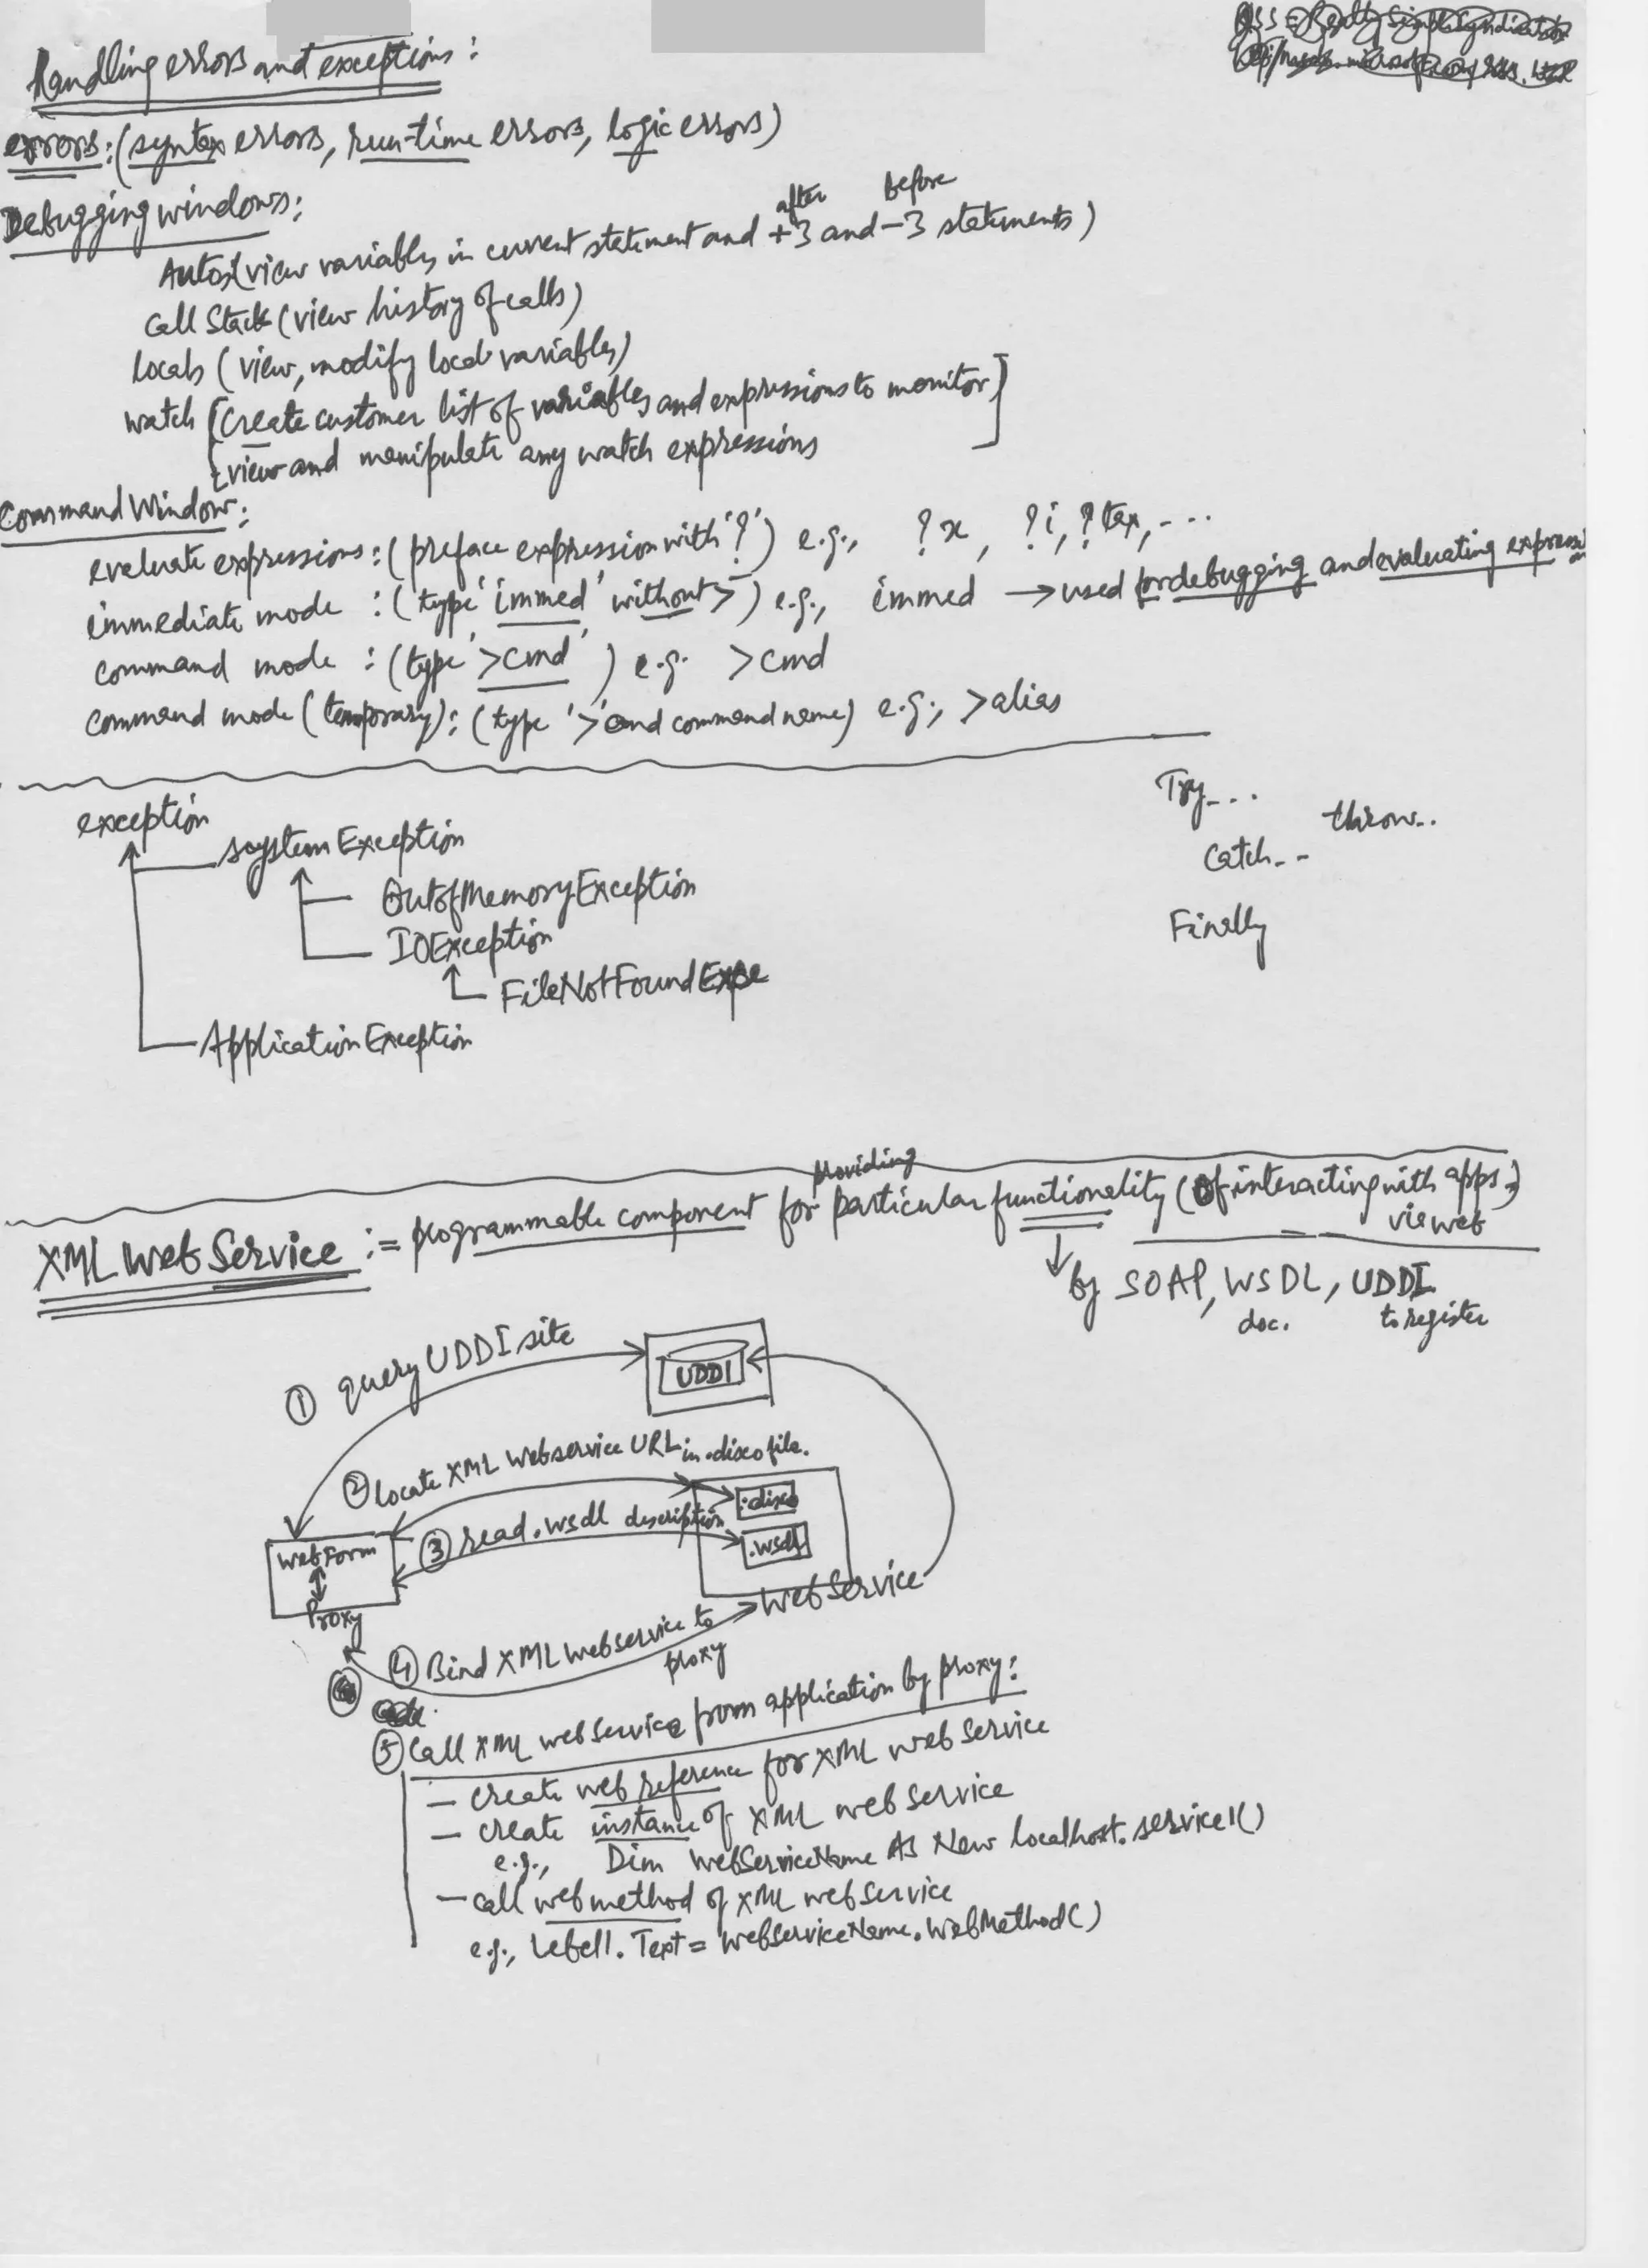 Handling errors and exceptions:
errors: (syntax errors, run-time errors, logic errors)
Debugging windows:
after before
Autos (view variables in current statement and +3 and -3 statements)
Call Stack (view history of calls)
Locals (view, modify local variables)
watch [create customer list of variables and expressions to monitor]
[view and manipulate any watch expressions
Command Window:
evaluate expressions: (preface expression with '?') e.g., ?x, ?i, ?tax, ...
immediate mode : (type 'immed' without >) e.g., immed → used for debugging and evaluating expressi
command mode : (type '>cmd') e.g. >cmd
command mode (temporary): (type '>' and command name) e.g., >alias
exception
Try...
throw..
systemException
Catch..
OutofMemoryException
Finally
IOException
FileNotFoundExpe
ApplicationException
providing
XML Web Service := programmable component for particular functionality (of interacting with apps.)
via web
↓ by SOAP, WSDL, UDDI
doc. to register
① query UDDI site
UDDI
② locate XML Webservice URL in .disco file.
.disco
③ read .wsdl description
.wsdl
webForm
Proxy
WebService
④ Bind XML webservice to
proxy
⑤ Call XML webservice from application by proxy:
- create web reference for XML web service
- create instance of XML web service
e.g., Dim WebServiceName As New localhost.service1()
- call web method of XML web service
e.g., Label1.Text = WebServiceName.WebMethod()